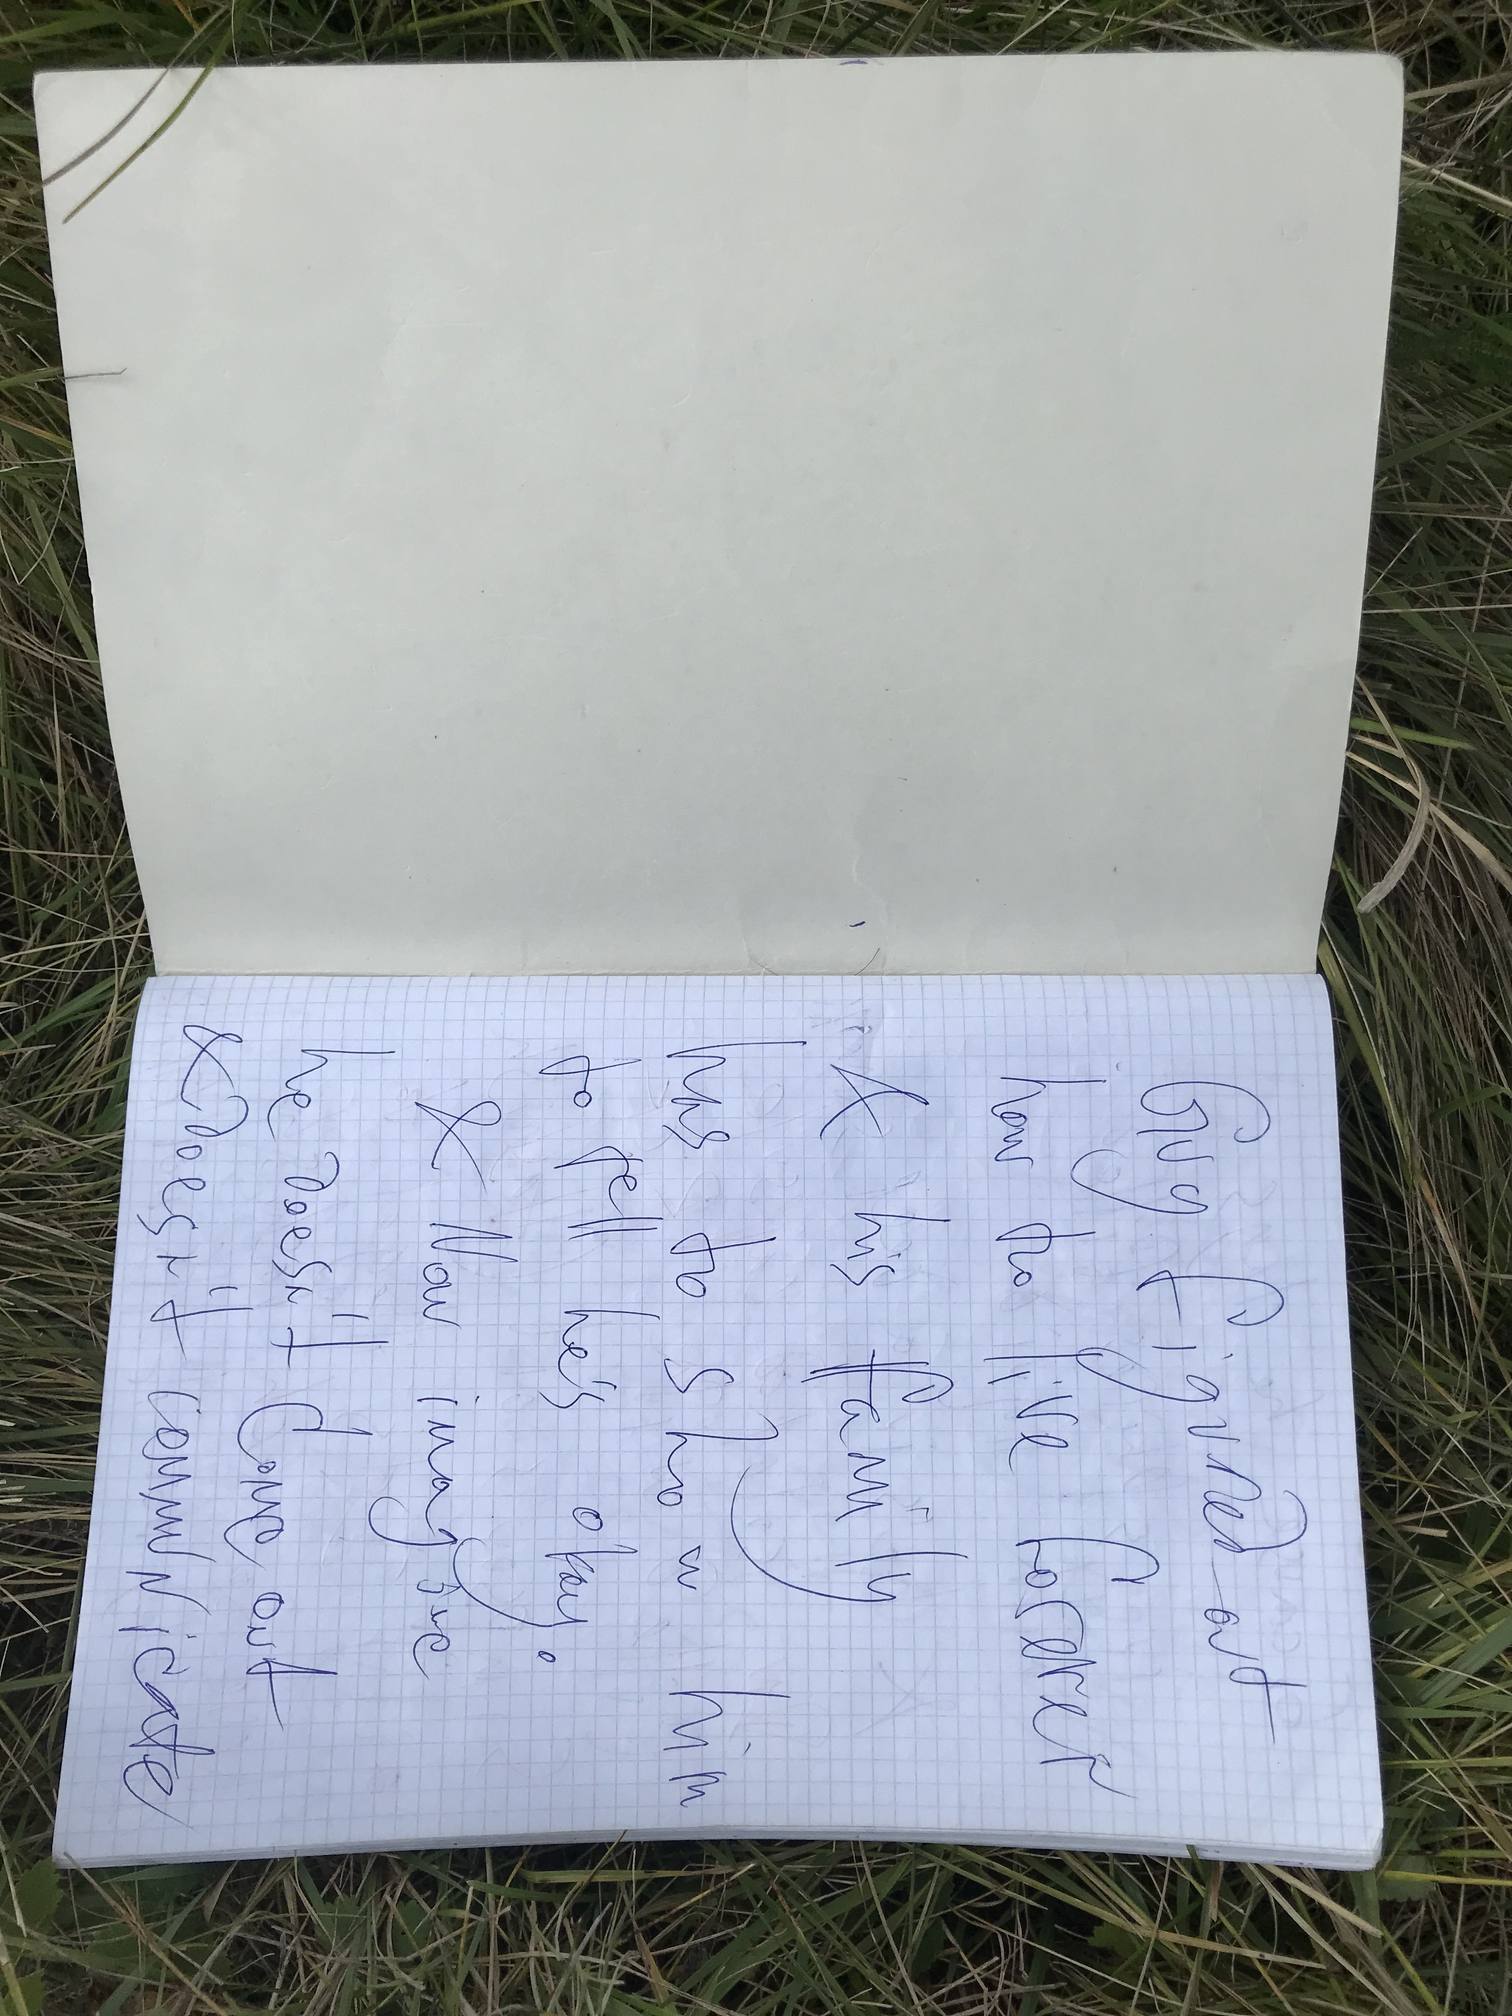 Guy figured out
how to live forever
& his family
has to show him
to tell he's okay.
& Now imagine
he doesn't come out
& doesn't communicate